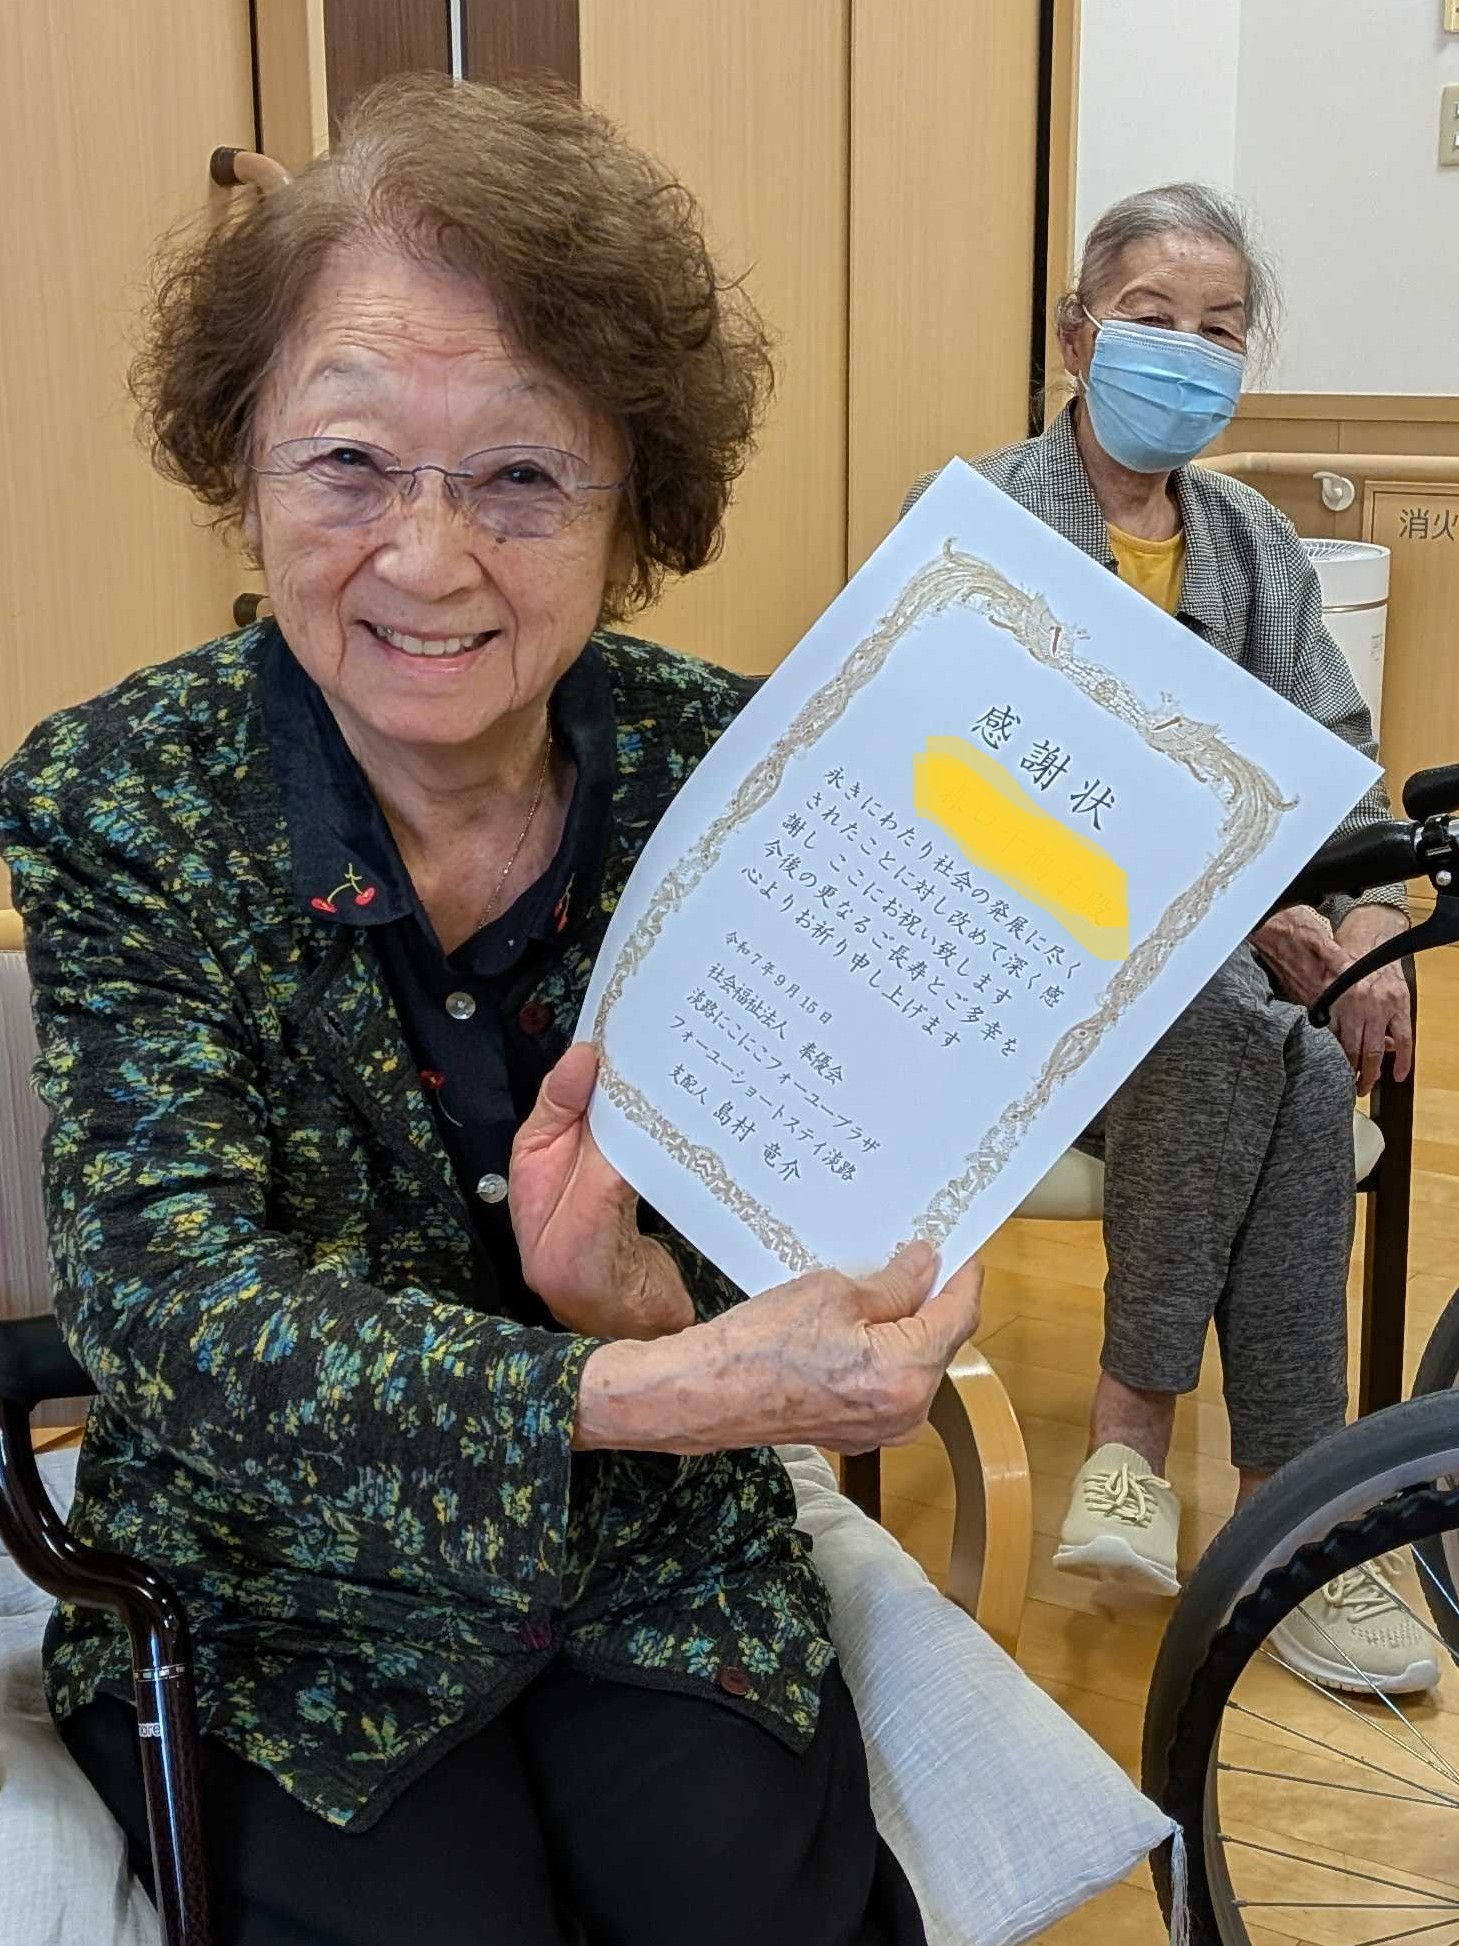 感謝状
永きにわたり社会の発展に尽く
されたことに対し改めて深く感
謝し ここにお祝い致します
今後の更なるご長寿とご多幸を
心よりお祈り申し上げます
令和7年9月15日
社会福祉法人 奉優会
淡路にこにこフォーユープラザ
フォーユーショートステイ淡路
支配人 島村 竜介
消火